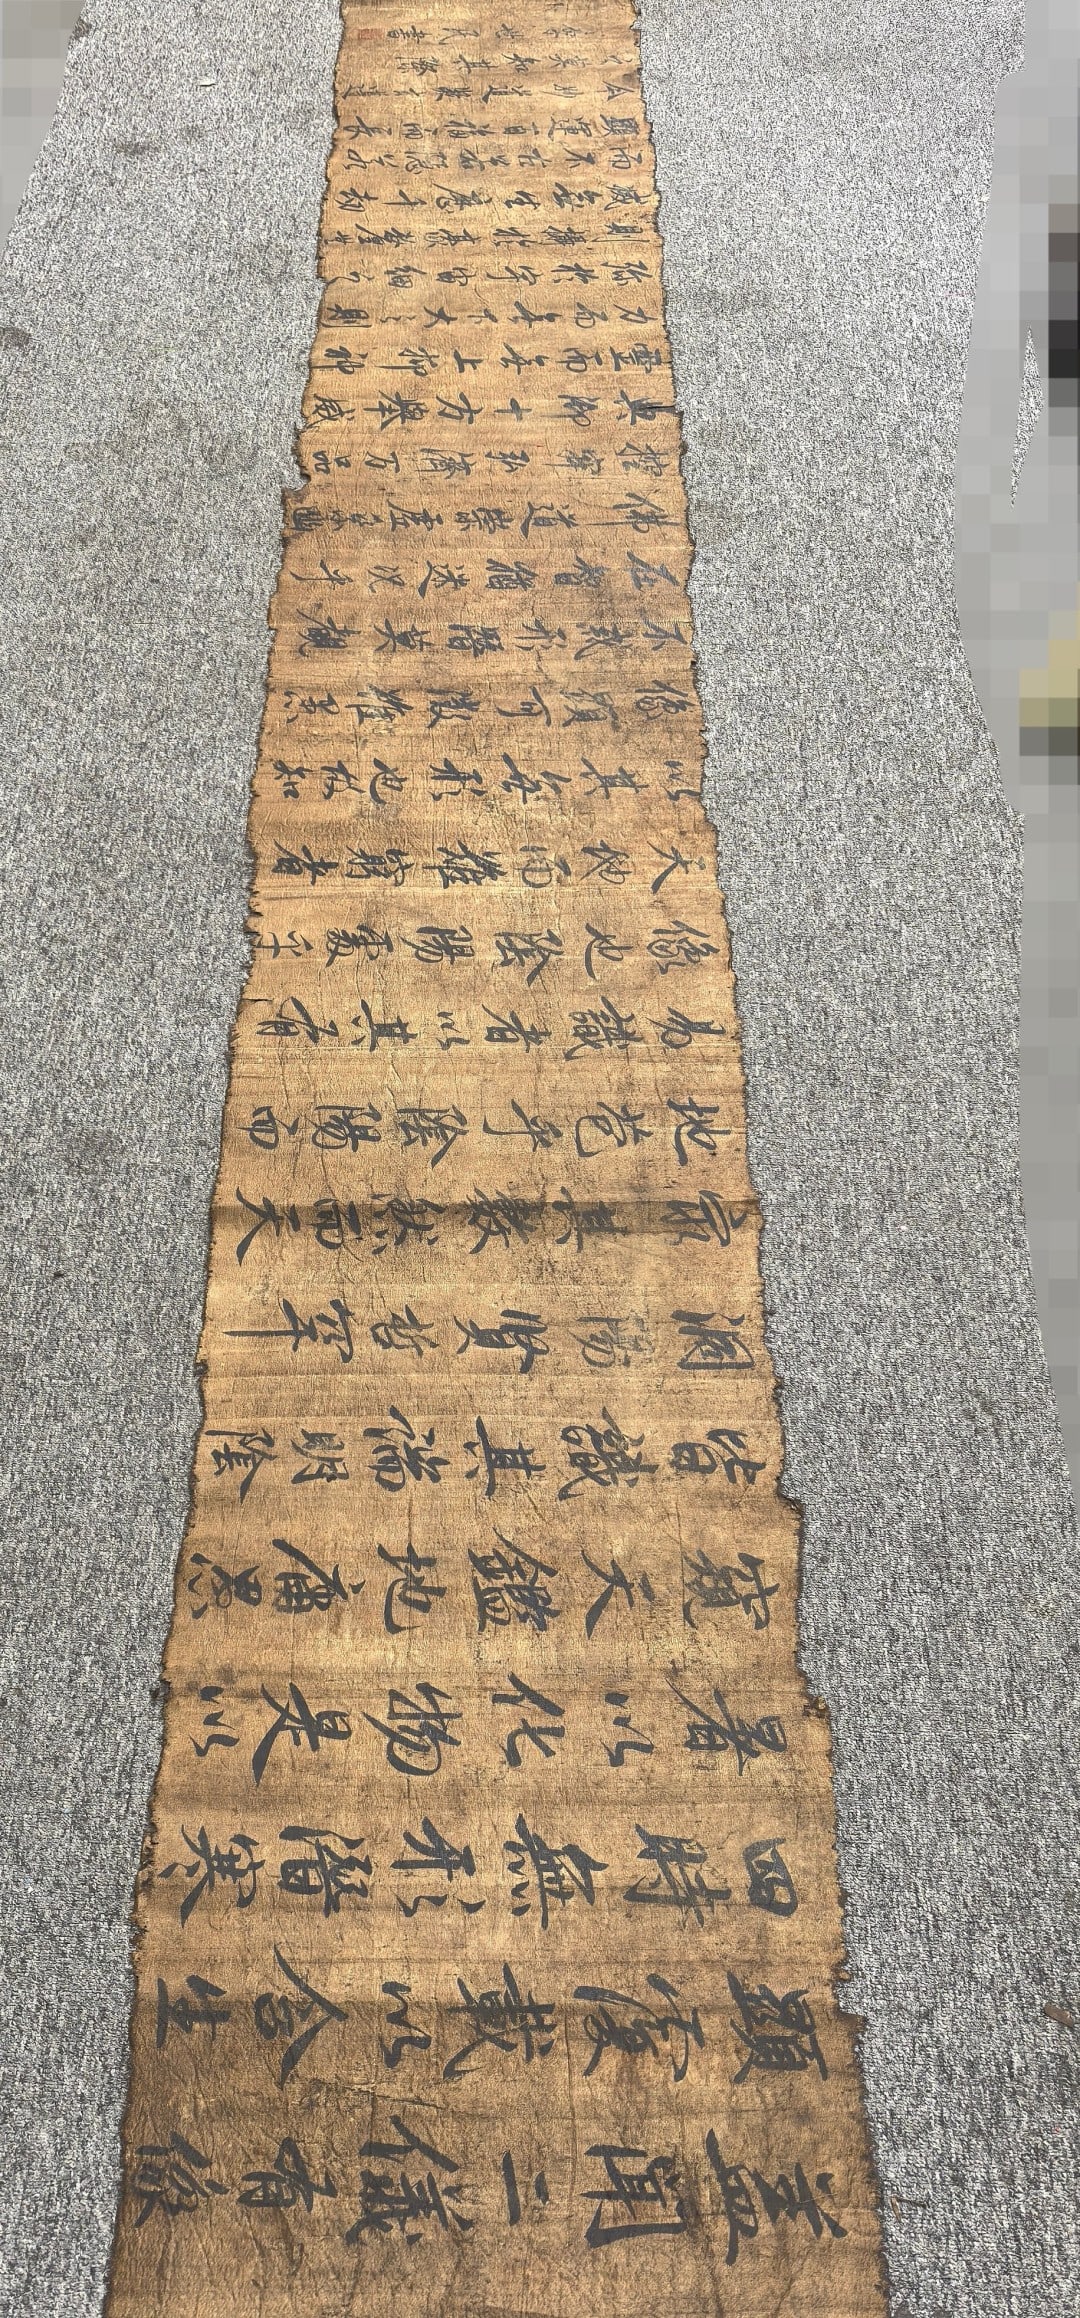 蓋聞二儀有像
顯覆載以含生
四時無形潛寒
暑以化物是以
窺天鑑地庸愚
皆識其端明陰
洞陽賢哲罕
窮其數然而天
地苞乎陰陽而
易識者以其有
像也陰陽處乎
天地而難窮者
以其無形也故知
像顯可徵雖愚
不惑形潛莫覩
在智猶迷況乎
佛道崇虛乘幽
控寂弘濟萬品
典御十方舉威
靈而無上抑神
力而無下大之則
弥於宇宙細之
則攝於毫釐無
滅無生歷千劫
而不古若隱若
顯運百福而長
今妙道凝玄遵
之莫知其際
世民書